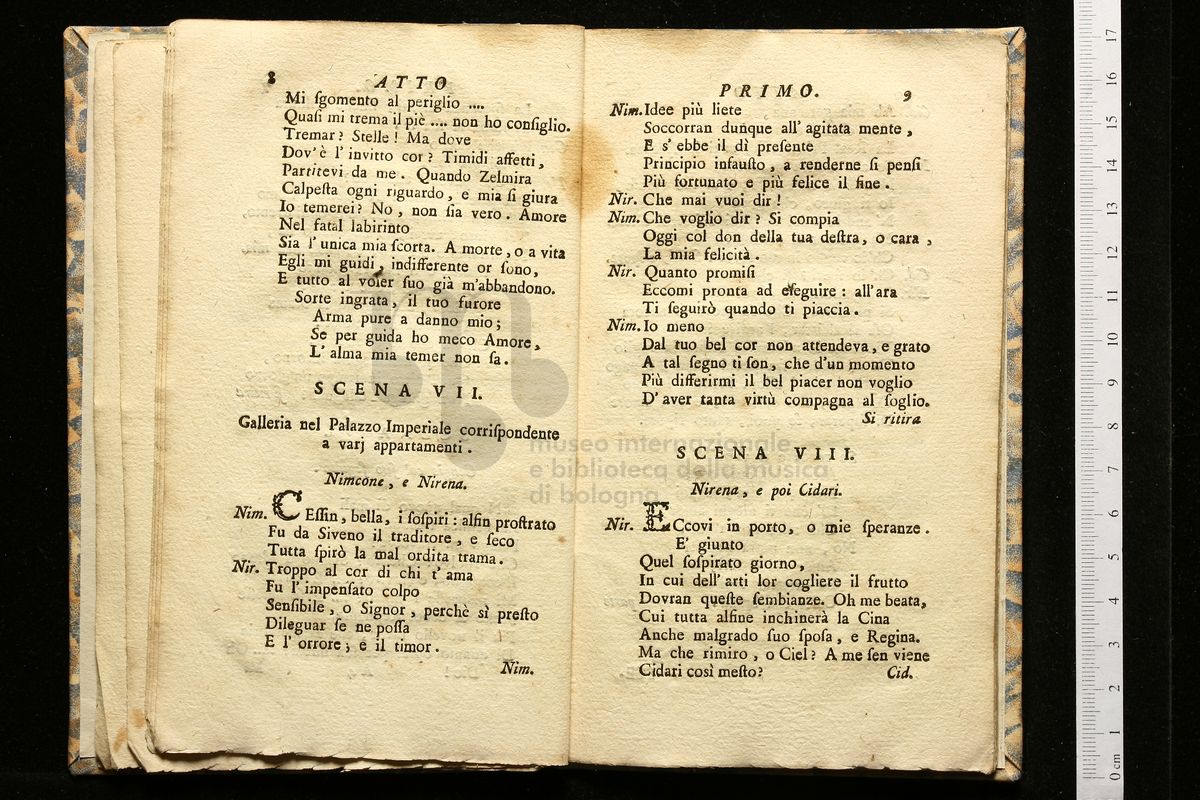 8 ATTO
Mi ſgomento al periglio ....
Quaſi mi trema il piè .... non ho conſiglio.
Tremar? Stelle! Ma dove
Dov'è l'invitto cor? Timidi affetti,
Partitevi da me. Quando Zelmira
Calpeſta ogni riguardo, e mia ſi giura
Io temerei? No, non ſia vero. Amore
Nel fatal labirinto
Sia l'unica mia ſcorta. A morte, o a vita
Egli mi guidi, indifferente or ſono,
E tutto al voler ſuo già m'abbandono.
Sorte ingrata, il tuo furore
Arma pure a danno mio;
Se per guida ho meco Amore,
L'alma mia temer non ſa.
SCENA VII.
Galleria nel Palazzo Imperiale corriſpondente
a varj appartamenti.
Nimcone, e Nirena.
Nim. CEſſin, bella, i ſoſpiri: alfin proſtrato
Fu da Siveno il traditore, e ſeco
Tutta ſpirò la mal ordita trama.
Nir. Troppo al cor di chi t'ama
Fu l'impenſato colpo
Senſibile, o Signor, perchè sì preſto
Dileguar ſe ne poſſa
E l'orrore; e il timor.
Nim.
PRIMO. 9
Nim. Idee più liete
Soccorran dunque all'agitata mente,
E s'ebbe il dì preſente
Principio infauſto, a renderne ſi penſi
Più fortunato e più felice il fine.
Nir. Che mai vuoi dir!
Nim. Che voglio dir? Si compia
Oggi col don della tua deſtra, o cara,
La mia felicità.
Nir. Quanto promiſi
Eccomi pronta ad eſeguire: all'ara
Ti ſeguirò quando ti piaccia.
Nim. Io meno
Dal tuo bel cor non attendeva, e grato
A tal ſegno ti ſon, che d'un momento
Più differirmi il bel piacer non voglio
D'aver tanta virtù compagna al ſoglio.
Si ritira
SCENA VIII.
Nirena, e poi Cidari.
Nir. ECcovi in porto, o mie ſperanze.
E' giunto
Quel ſoſpirato giorno,
In cui dell'arti lor cogliere il frutto
Dovran queſte ſembianze. Oh me beata,
Cui tutta alfine inchinerà la Cina
Anche malgrado ſuo ſpoſa, e Regina.
Ma che rimiro, o Ciel? A me ſen viene
Cidari così meſto?
Cid.
museo internazionale
e biblioteca della musica
di bologna
17
16
15
14
13
12
11
10
9
8
7
6
5
4
3
2
1
0 cm